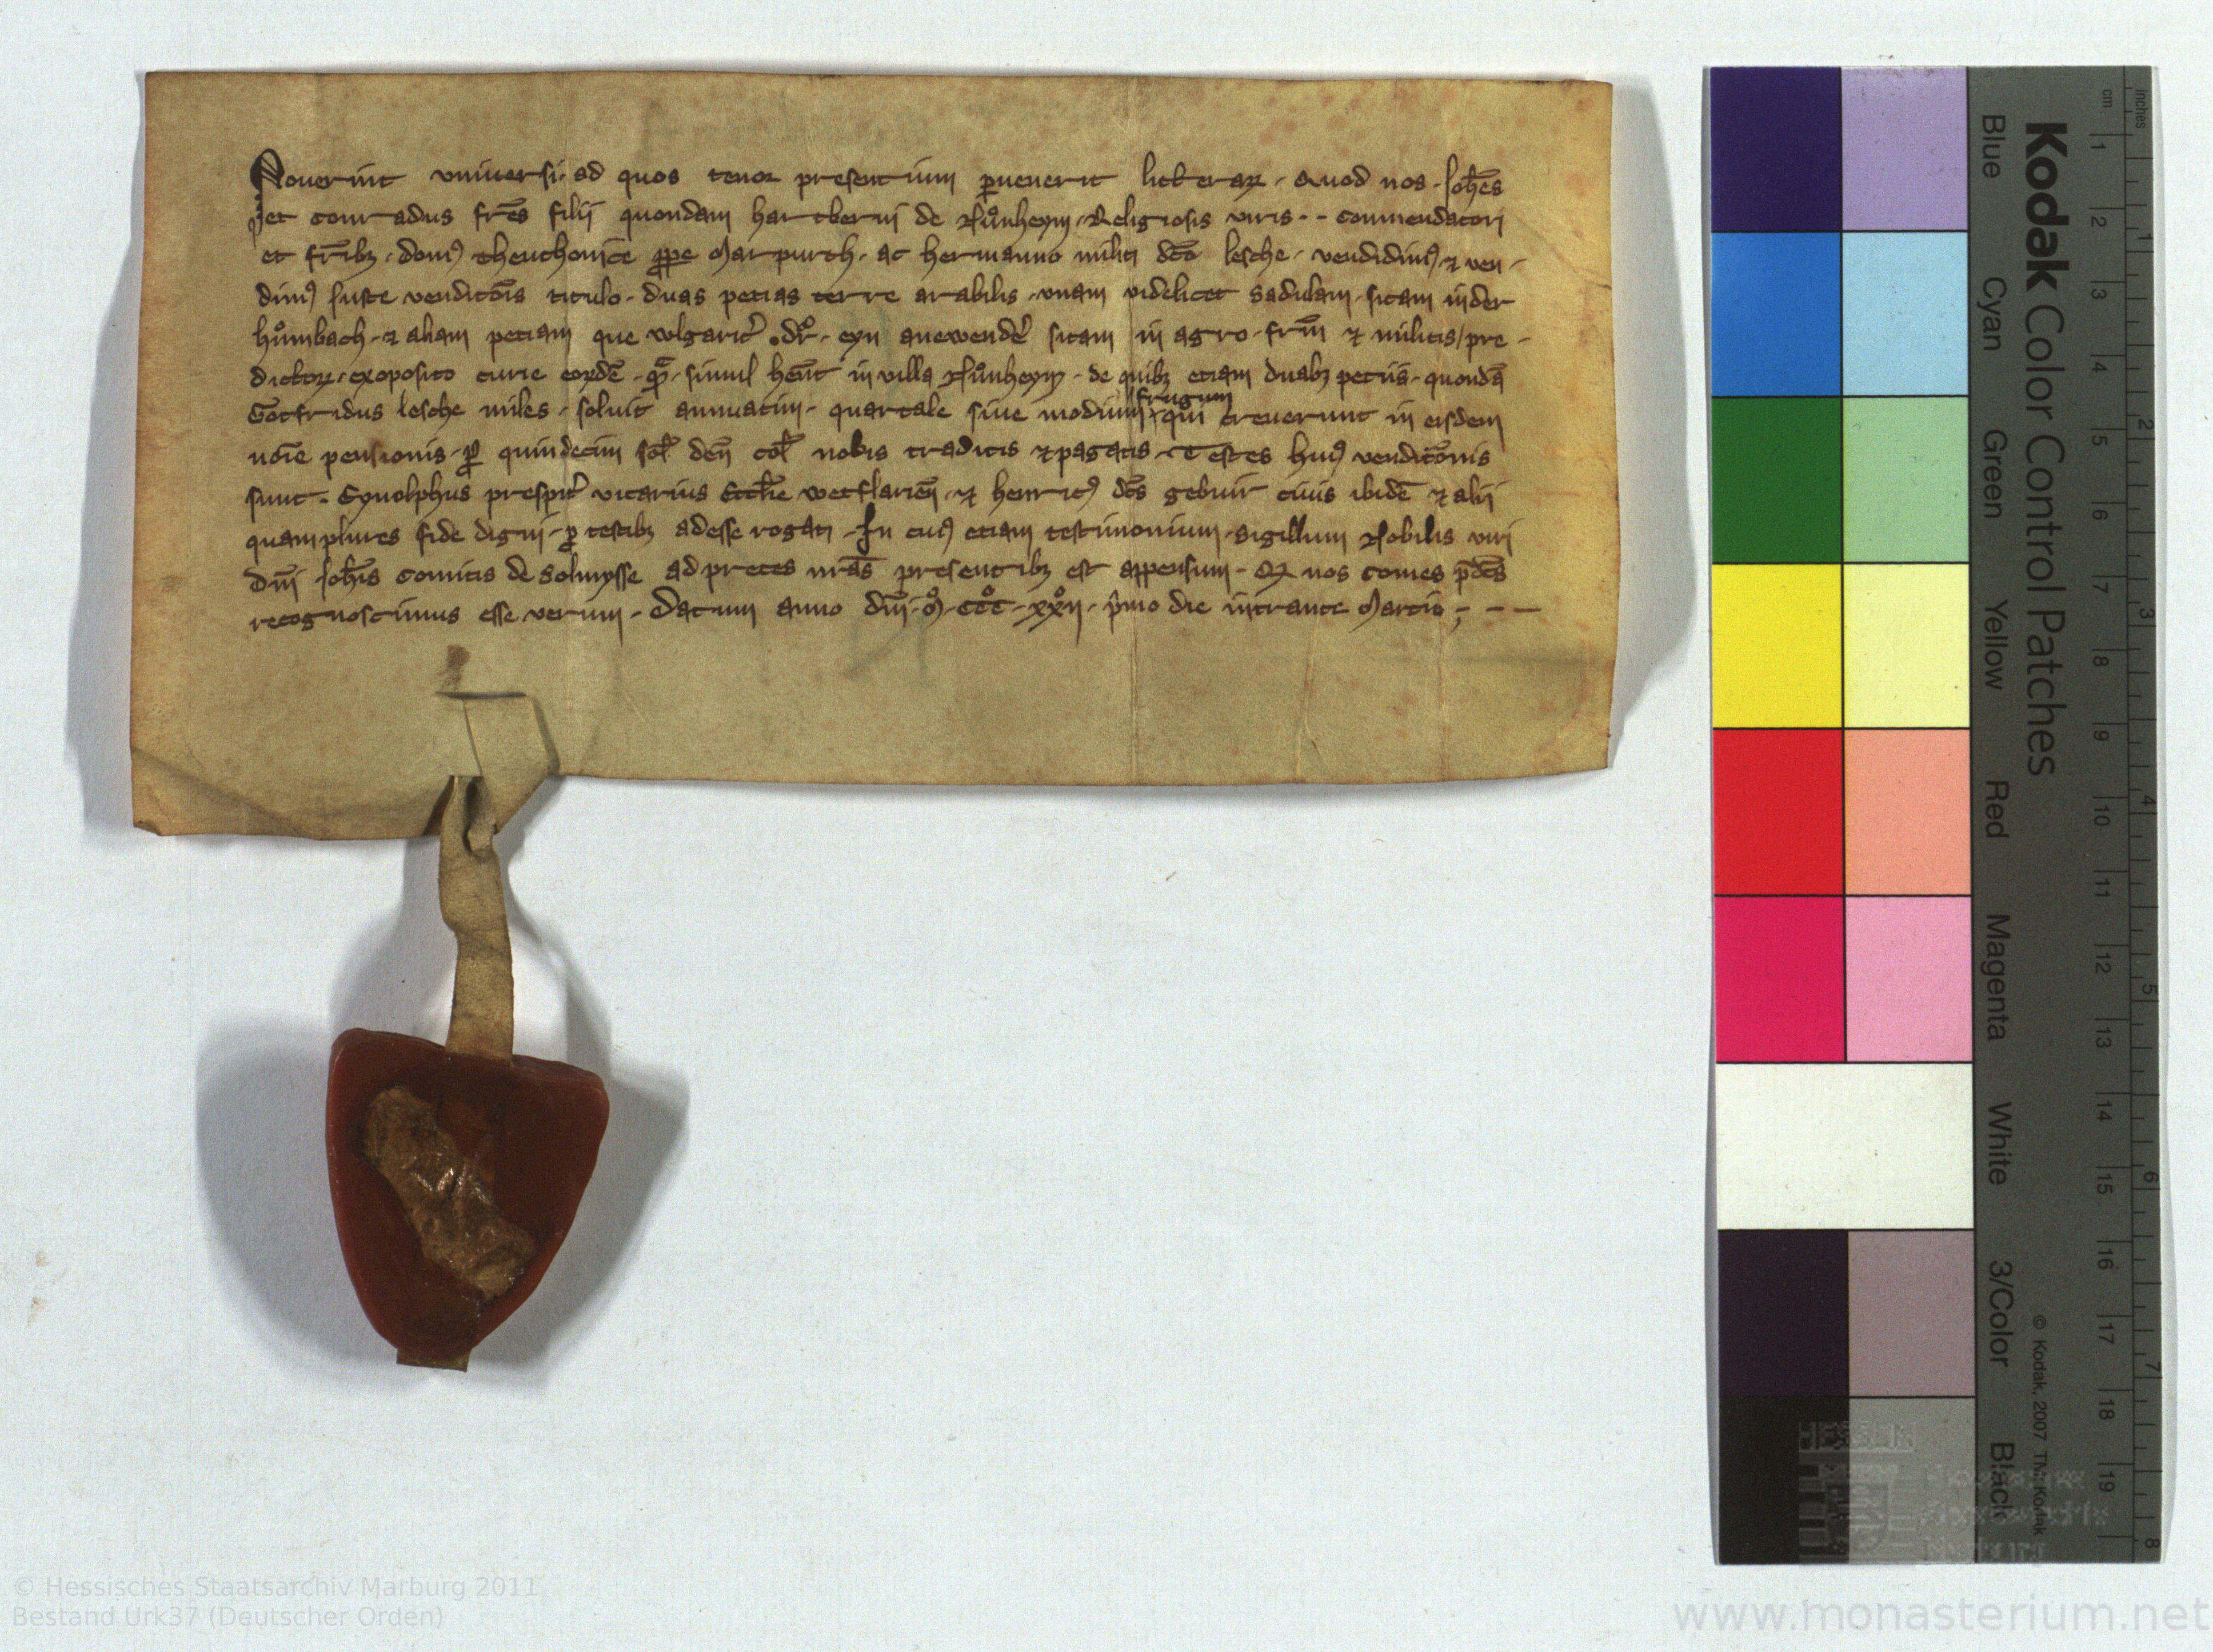 Nouerint vniuersi. ad quos tenor presentium ꝑuenerit litterarꝫ. Quod nos. Joh̄es
et conradus fr̄es filij quondam hartberni de Nuͦnheym. Religiosis viris .. commendatori
et fr̄ibꝫ. domꝰ theuthonic̄e ꝓpe Marpurch. ac hermanno militi dc̄o lesche. vendidimꝰ ⁊ ven-
dimꝰ Juste vendic̄ois titulo. duas pecias terre arabilis. vnam videlicet Sadulam. sitam inder
huͦmbach. ⁊ aliam peciam que wlgarit᷑ .dr̄. eyn anewendē sitam in agro. fr̄m ⁊ militis / pre-
dictoꝝ. exoposito curie eoꝝdē. simul hn̄t in villa Nuͦnheym. de quibꝫ etiam duabꝫ peciis. quondā
Gotfridus lesche miles. soluit annuatim. quartale siue modium frugum qui creuerunt in eisdem
noīe pensionis. ꝓ quindecim sol̄ den̄ col̄ nobis traditis ⁊ pagatis. Testes huiꝰ vendic̄onis
sunt. Eynolphus prespit᷑ vicarius Eccl̄ie wetflarien̄. ⁊ henricꝰ dc̄s gebuir ciuis ibidē ⁊ alij
quamplures fide digni. ꝓ testibꝫ adesse rogati. In cuiꝰ etiam testimonium. Sigillum Nobilis viri
dn̄i Joh̄is comitis de Solmysse ad preces nr̄as presentibꝫ est appensum. Qꝫ nos comes p̄dc̄s
recognoscimus esse verum. Datum anno dn̄i. Mͦ. CCͦC. xxͦij. p̄mo die intrante Marcio. - -
Kodak Color Control Patches
Blue Cyan Green Yellow Red Magenta White 3/Color Black
© Kodak, 2007 TM: Kodak
cm 1 2 3 4 5 6 7 8 9 10 11 12 13 14 15 16 17 18 19
inches 1 2 3 4 5 6 7 8
© Hessisches Staatsarchiv Marburg 2011
Bestand Urk37 (Deutscher Orden)
www.monasterium.net